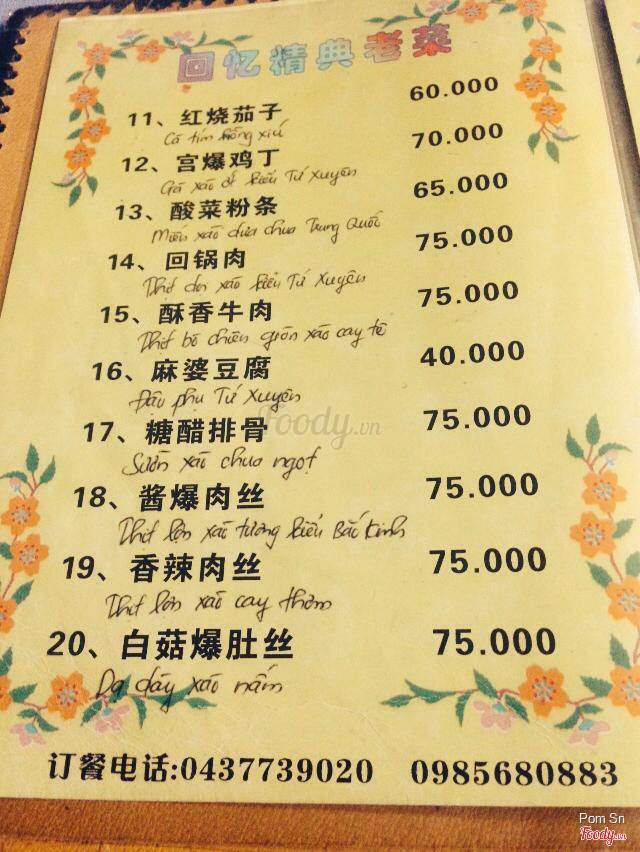 回忆精典老菜
11、红烧茄子 60.000
Cà tím hồng xíu
12、宫爆鸡丁 70.000
Gà xào ớt kiểu Tứ Xuyên
13、酸菜粉条 65.000
Miến xào dưa chua Trung Quốc
14、回锅肉 75.000
Thịt lợn xào kiểu Tứ Xuyên
15、酥香牛肉 75.000
Thịt bò chiên giòn xào cay tê
16、麻婆豆腐 40.000
Đậu phụ Tứ Xuyên
17、糖醋排骨 75.000
Sườn xào chua ngọt
18、酱爆肉丝 75.000
Thịt lợn xào tương kiểu Bắc Kinh
19、香辣肉丝 75.000
Thịt lợn xào cay thơm
20、白菇爆肚丝 75.000
Dạ dày xào nấm
订餐电话:0437739020 0985680883
Foody.vn
Pom Sn
Foody.vn